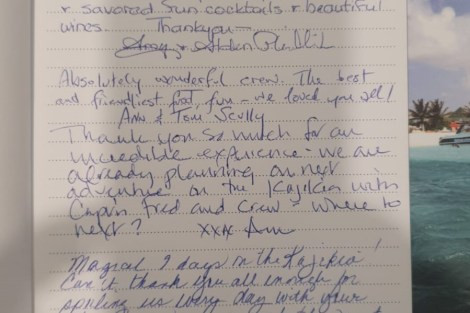 & savored Sun cocktails & beautiful
wines. Thankyou—
Absolutely wonderful crew. The best
and friendliest fun – we loved you all!
Ann & Tom Scully
Thank you so much for an
incredible experience - we are
already planning our next
adventure on the Kajikia with
Capt'n Fred and Crew - where to
next? xxx Ann
Magical 9 days in the Kajikia!
Can't thank you all enough for
spoiling us every day with your